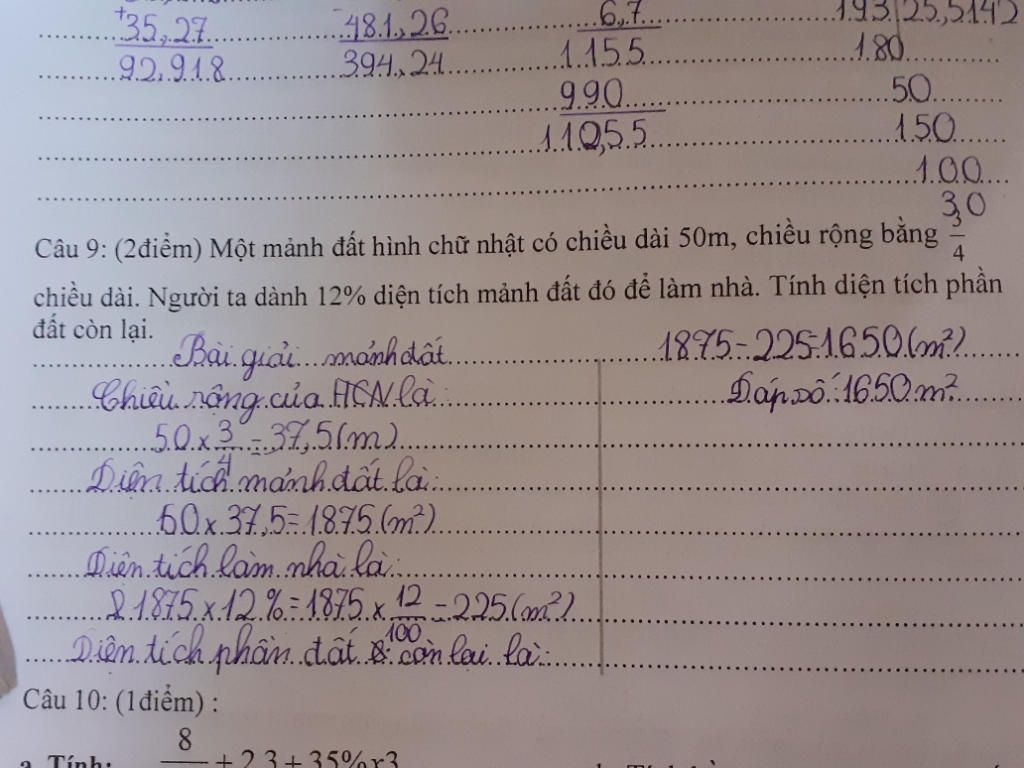 +35,27 -481,26 6,7 193 25,5142
92,918 394,24 1155 180
990 50
110,55 150
100
30
Câu 9: (2điểm) Một mảnh đất hình chữ nhật có chiều dài 50m, chiều rộng bằng 3/4
chiều dài. Người ta dành 12% diện tích mảnh đất đó để làm nhà. Tính diện tích phần
đất còn lại.
Bài giải mảnh đất
Chiều rộng của HCN là:
50 x 3/4 = 37,5 (m)
Diện tích mảnh đất là:
50 x 37,5 = 1875 (m²)
Diện tích làm nhà là:
1875 x 12 % = 1875 x 12/100 = 225 (m²)
Diện tích phần đất còn lại là:
1875 - 225 = 1650 (m²)
Đáp số: 1650 m²
Câu 10: (1điểm) :
a. Tính: 8 + 2,3 + 35% x3